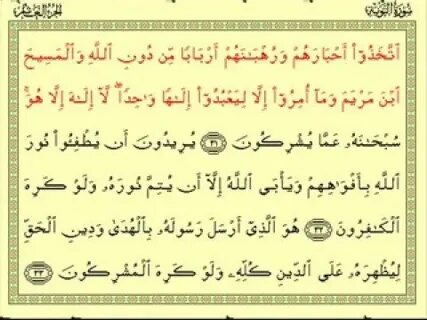 سُورَةُ التَّوْبَةِ
الجُزْءُ العَاشِرُ
ٱتَّخَذُوٓا۟ أَحْبَارَهُمْ وَرُهْبَـٰنَهُمْ أَرْبَابًا مِّن دُونِ ٱللَّهِ وَٱلْمَسِيحَ
ٱبْنَ مَرْيَمَ وَمَآ أُمِرُوٓا۟ إِلَّا لِيَعْبُدُوٓا۟ إِلَـٰهًا وَٰحِدًا ۖ لَّآ إِلَـٰهَ إِلَّا هُوَ ۚ
سُبْحَـٰنَهُۥ عَمَّا يُشْرِكُونَ ٣١ يُرِيدُونَ أَن يُطْفِـُٔوا۟ نُورَ
ٱللَّهِ بِأَفْوَٰهِهِمْ وَيَأْبَى ٱللَّهُ إِلَّآ أَن يُتِمَّ نُورَهُۥ وَلَوْ كَرِهَ
ٱلْكَـٰفِرُونَ ٣٢ هُوَ ٱلَّذِىٓ أَرْسَلَ رَسُولَهُۥ بِٱلْهُدَىٰ وَدِينِ ٱلْحَقِّ
لِيُظْهِرَهُۥ عَلَى ٱلدِّينِ كُلِّهِۦ وَلَوْ كَرِهَ ٱلْمُشْرِكُونَ ٣٣